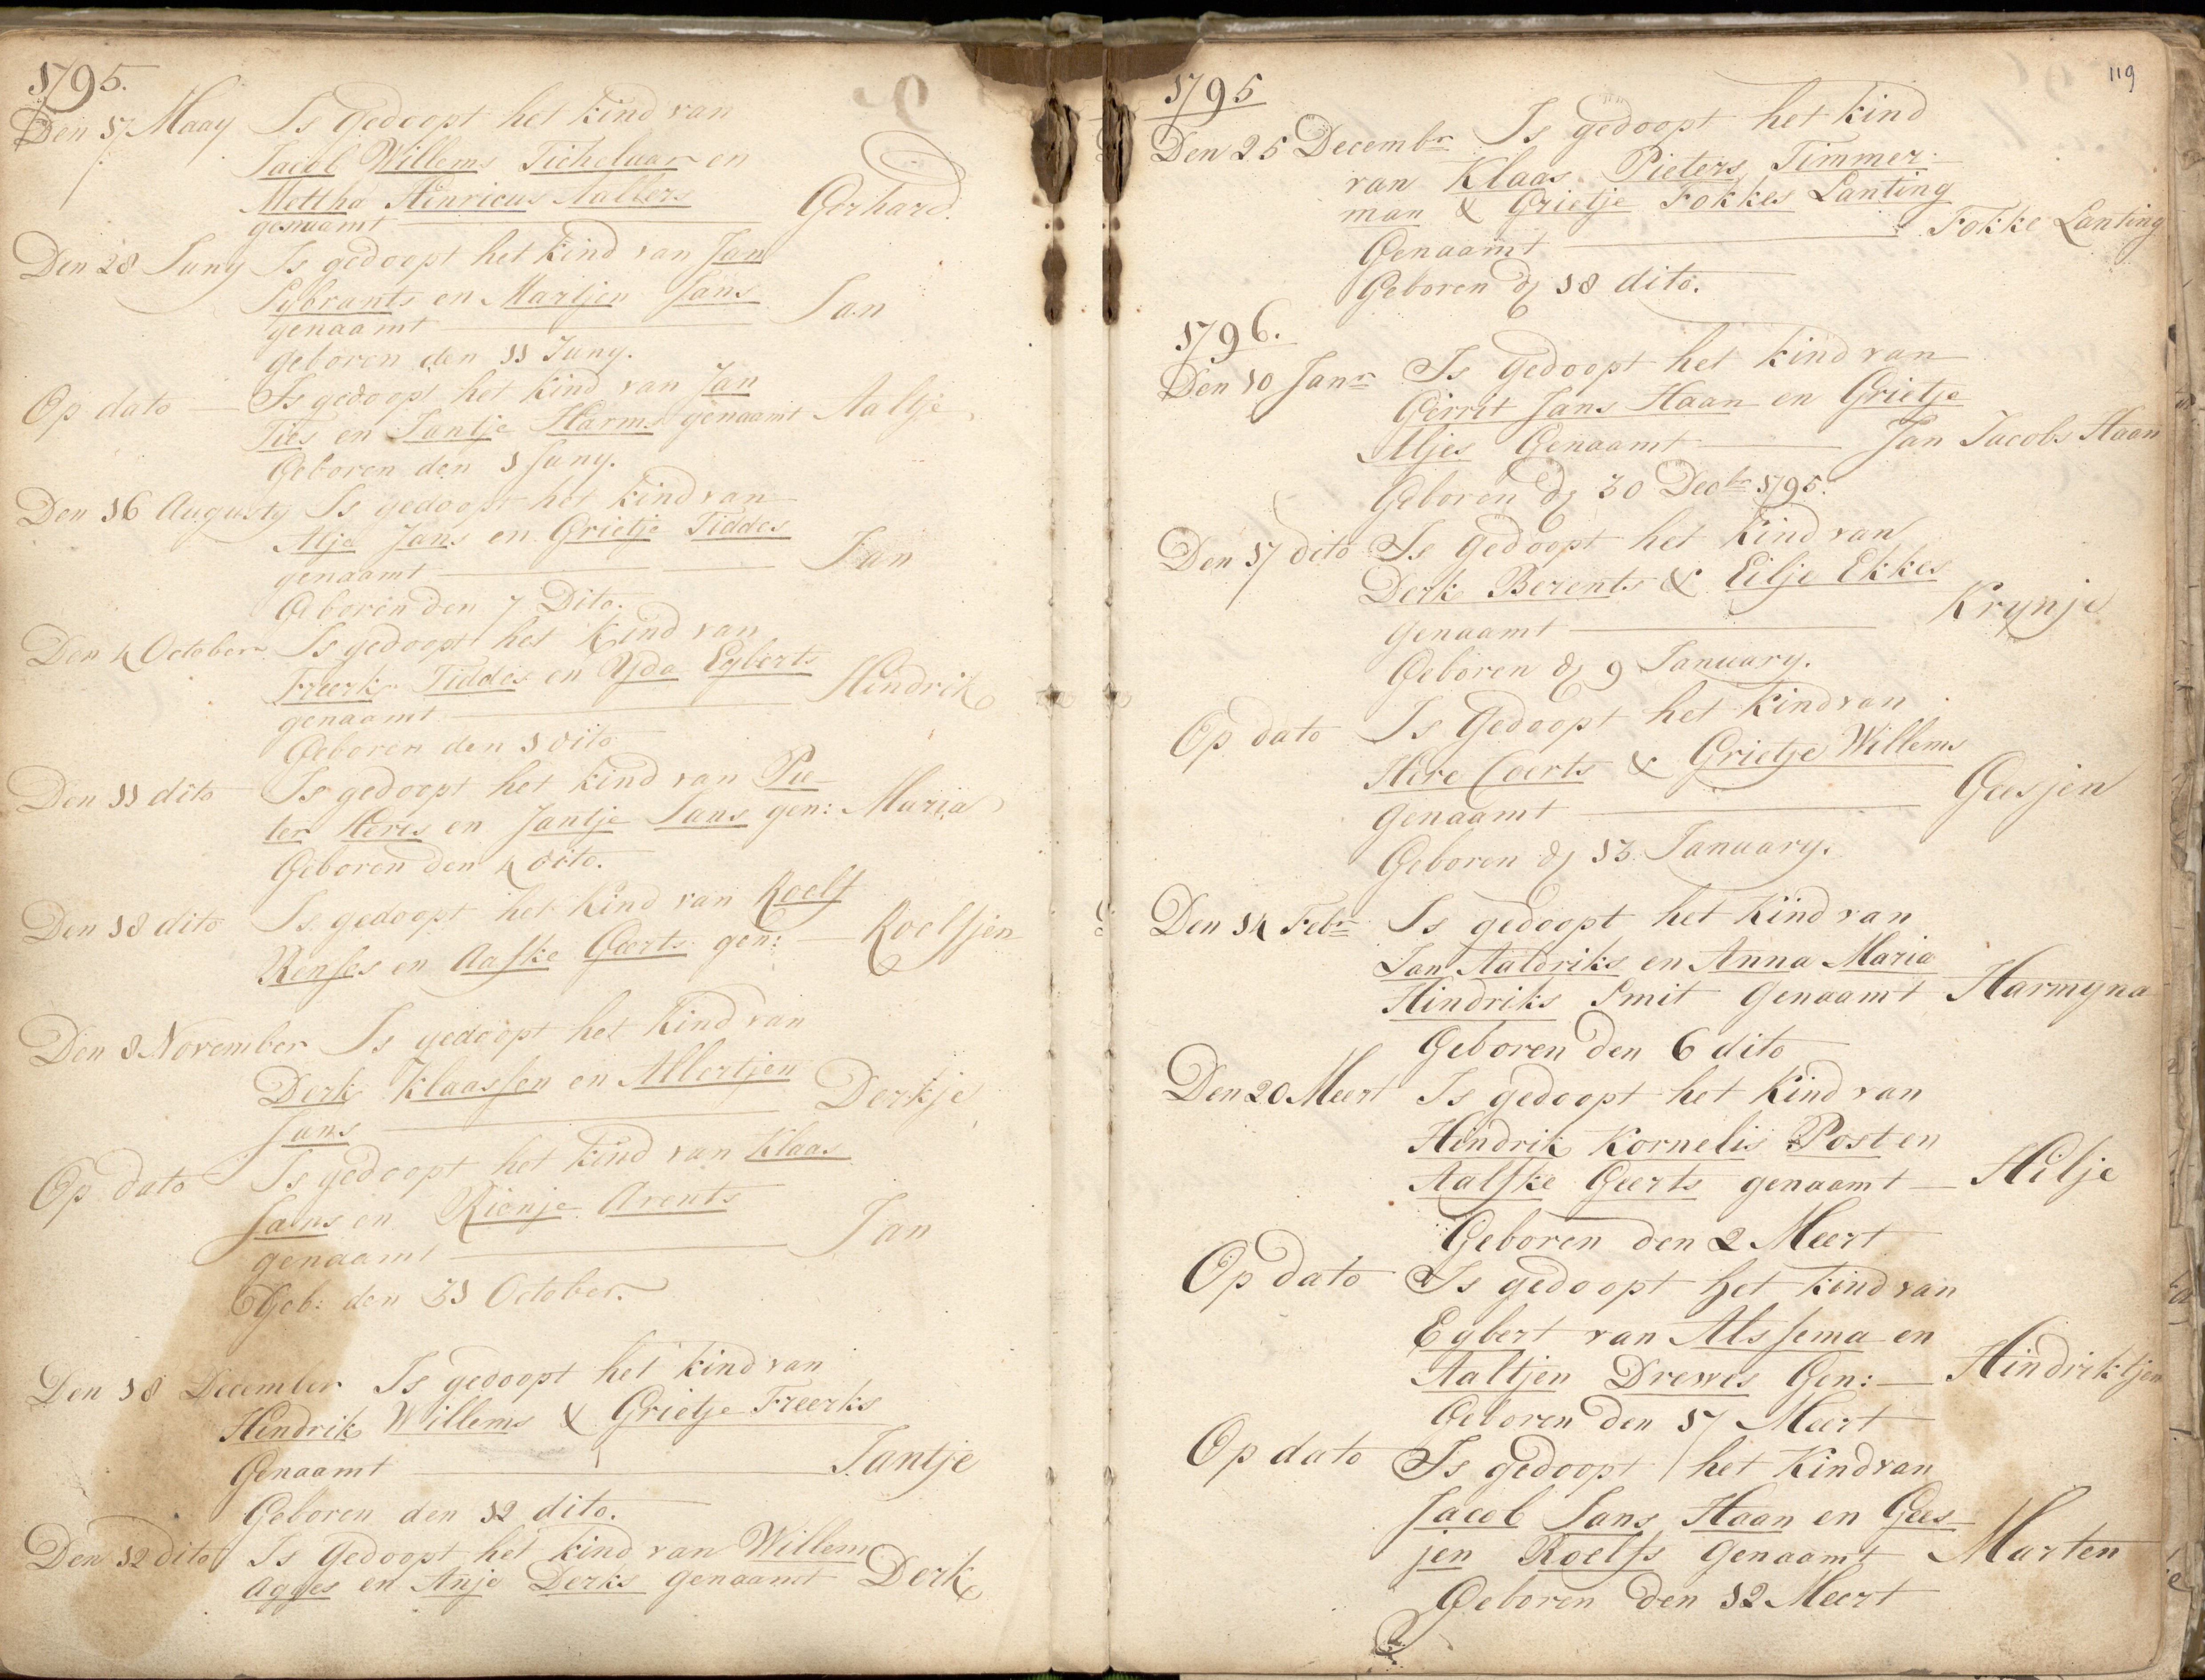 1795.
Den 17 Maay Is Gedoopt het kind van
Jacob Willems Tichelaar en
Mettha Hinricus Aalbers
genaamt Gerhard.
Den 28 Juny Is gedoopt het kind van Jan
Sybrants en Martjen Jans
genaamt Jan
geboren den 11 Juny.
Op dato Is gedoopt het kind van Jan
Ties en Jantje Harms genaamt Aaltje
Geboren den 1 Juny.
Den 16 Augusty Is gedoopt het kind van
Alje Jans en Grietje Tiddes
genaamt Jan
Geboren den 7 Dito.
Den 4 October Is gedoopt het kind van
Freerk Tiddes en Yda Egberts
genaamt Hindrik
Geboren den 1 dito
Den 11 dito Is gedoopt het kind van Pie-
ter Heres en Jantje Jans gen: Maria
Geboren den 4 dito.
Den 18 dito Is gedoopt het kind van Roelf
Renses en Aafke Geerts gen: Roelfjen
Den 8 November Is gedoopt het kind van
Derk Klaassen en Albertjen
Jans Derkje
Op dato Is gedoopt het kind van Klaas
Jans en Rienje Arents
genaamt Jan
Geb: den 31 October.
Den 18 December Is gedoopt het kind van
Hendrik Willems & Grietje Freerks
Genaamt Jantje
Geboren den 12 dito.
Den 12 dito Is Gedoopt het kind van Willem
Agges en Anje Derks genaamt Derk
119
1795
Den 25 Decembr Is gedoopt het kind
van Klaas Pieters Timmer-
man & Grietje Fokkes Lanting
Genaamt Fokke Lanting
Geboren d 18 dito.
1796.
Den 10 Janr Is Gedoopt het kind van
Gerrit Jans Haan en Grietje
Aljes Genaamt Jan Jacobs Haan
Geboren d 30 Decbr 1795.
Den 17 dito Is Gedoopt het kind van
Derk Berents & Eilje Ekkes
genaamt Krynje
Geboren d 9 January.
Op dato Is Gedoopt het kind van
Here Coerts & Grietje Willems
Genaamt Geesjen
Geboren d 13 January.
Den 14 Febr Is gedoopt het kind van
Jan Aaldriks en Anna Maria
Hindriks Smit Genaamt Harmyna
Geboren den 6 dito
Den 20 Meert Is gedoopt het kind van
Hindrik Kornelis Post en
Aalfke Geerts genaamt Hilje
Geboren den 2 Meert
Op dato Is gedoopt het kind van
Egbert van Alssema en
Aaltjen Drewes Gen: Hindriktjen
Geboren den 17 Meert
Op dato Is gedoopt het Kind van
Jacob Jans Haan en Gees-
jen Roelfs Genaamt Marten
Geboren den 12 Meert